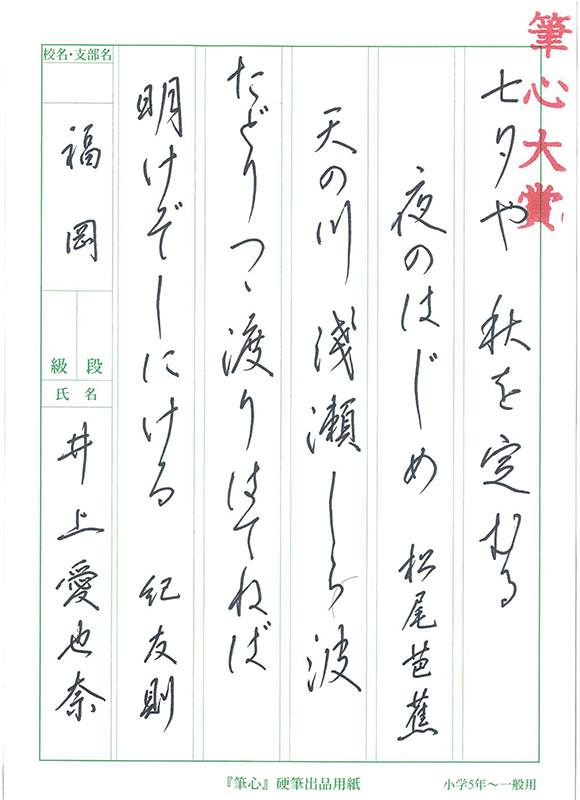 筆心大賞
七夕や 秋を定むる
夜のはじめ 松尾芭蕉
天の川 浅瀬しら波
たどりつゝ渡りはてねば
明けぞしにける 紀友則
校名・支部名
福岡
級 段
氏名
井上愛也奈
『筆心』硬筆出品用紙
小学5年〜一般用